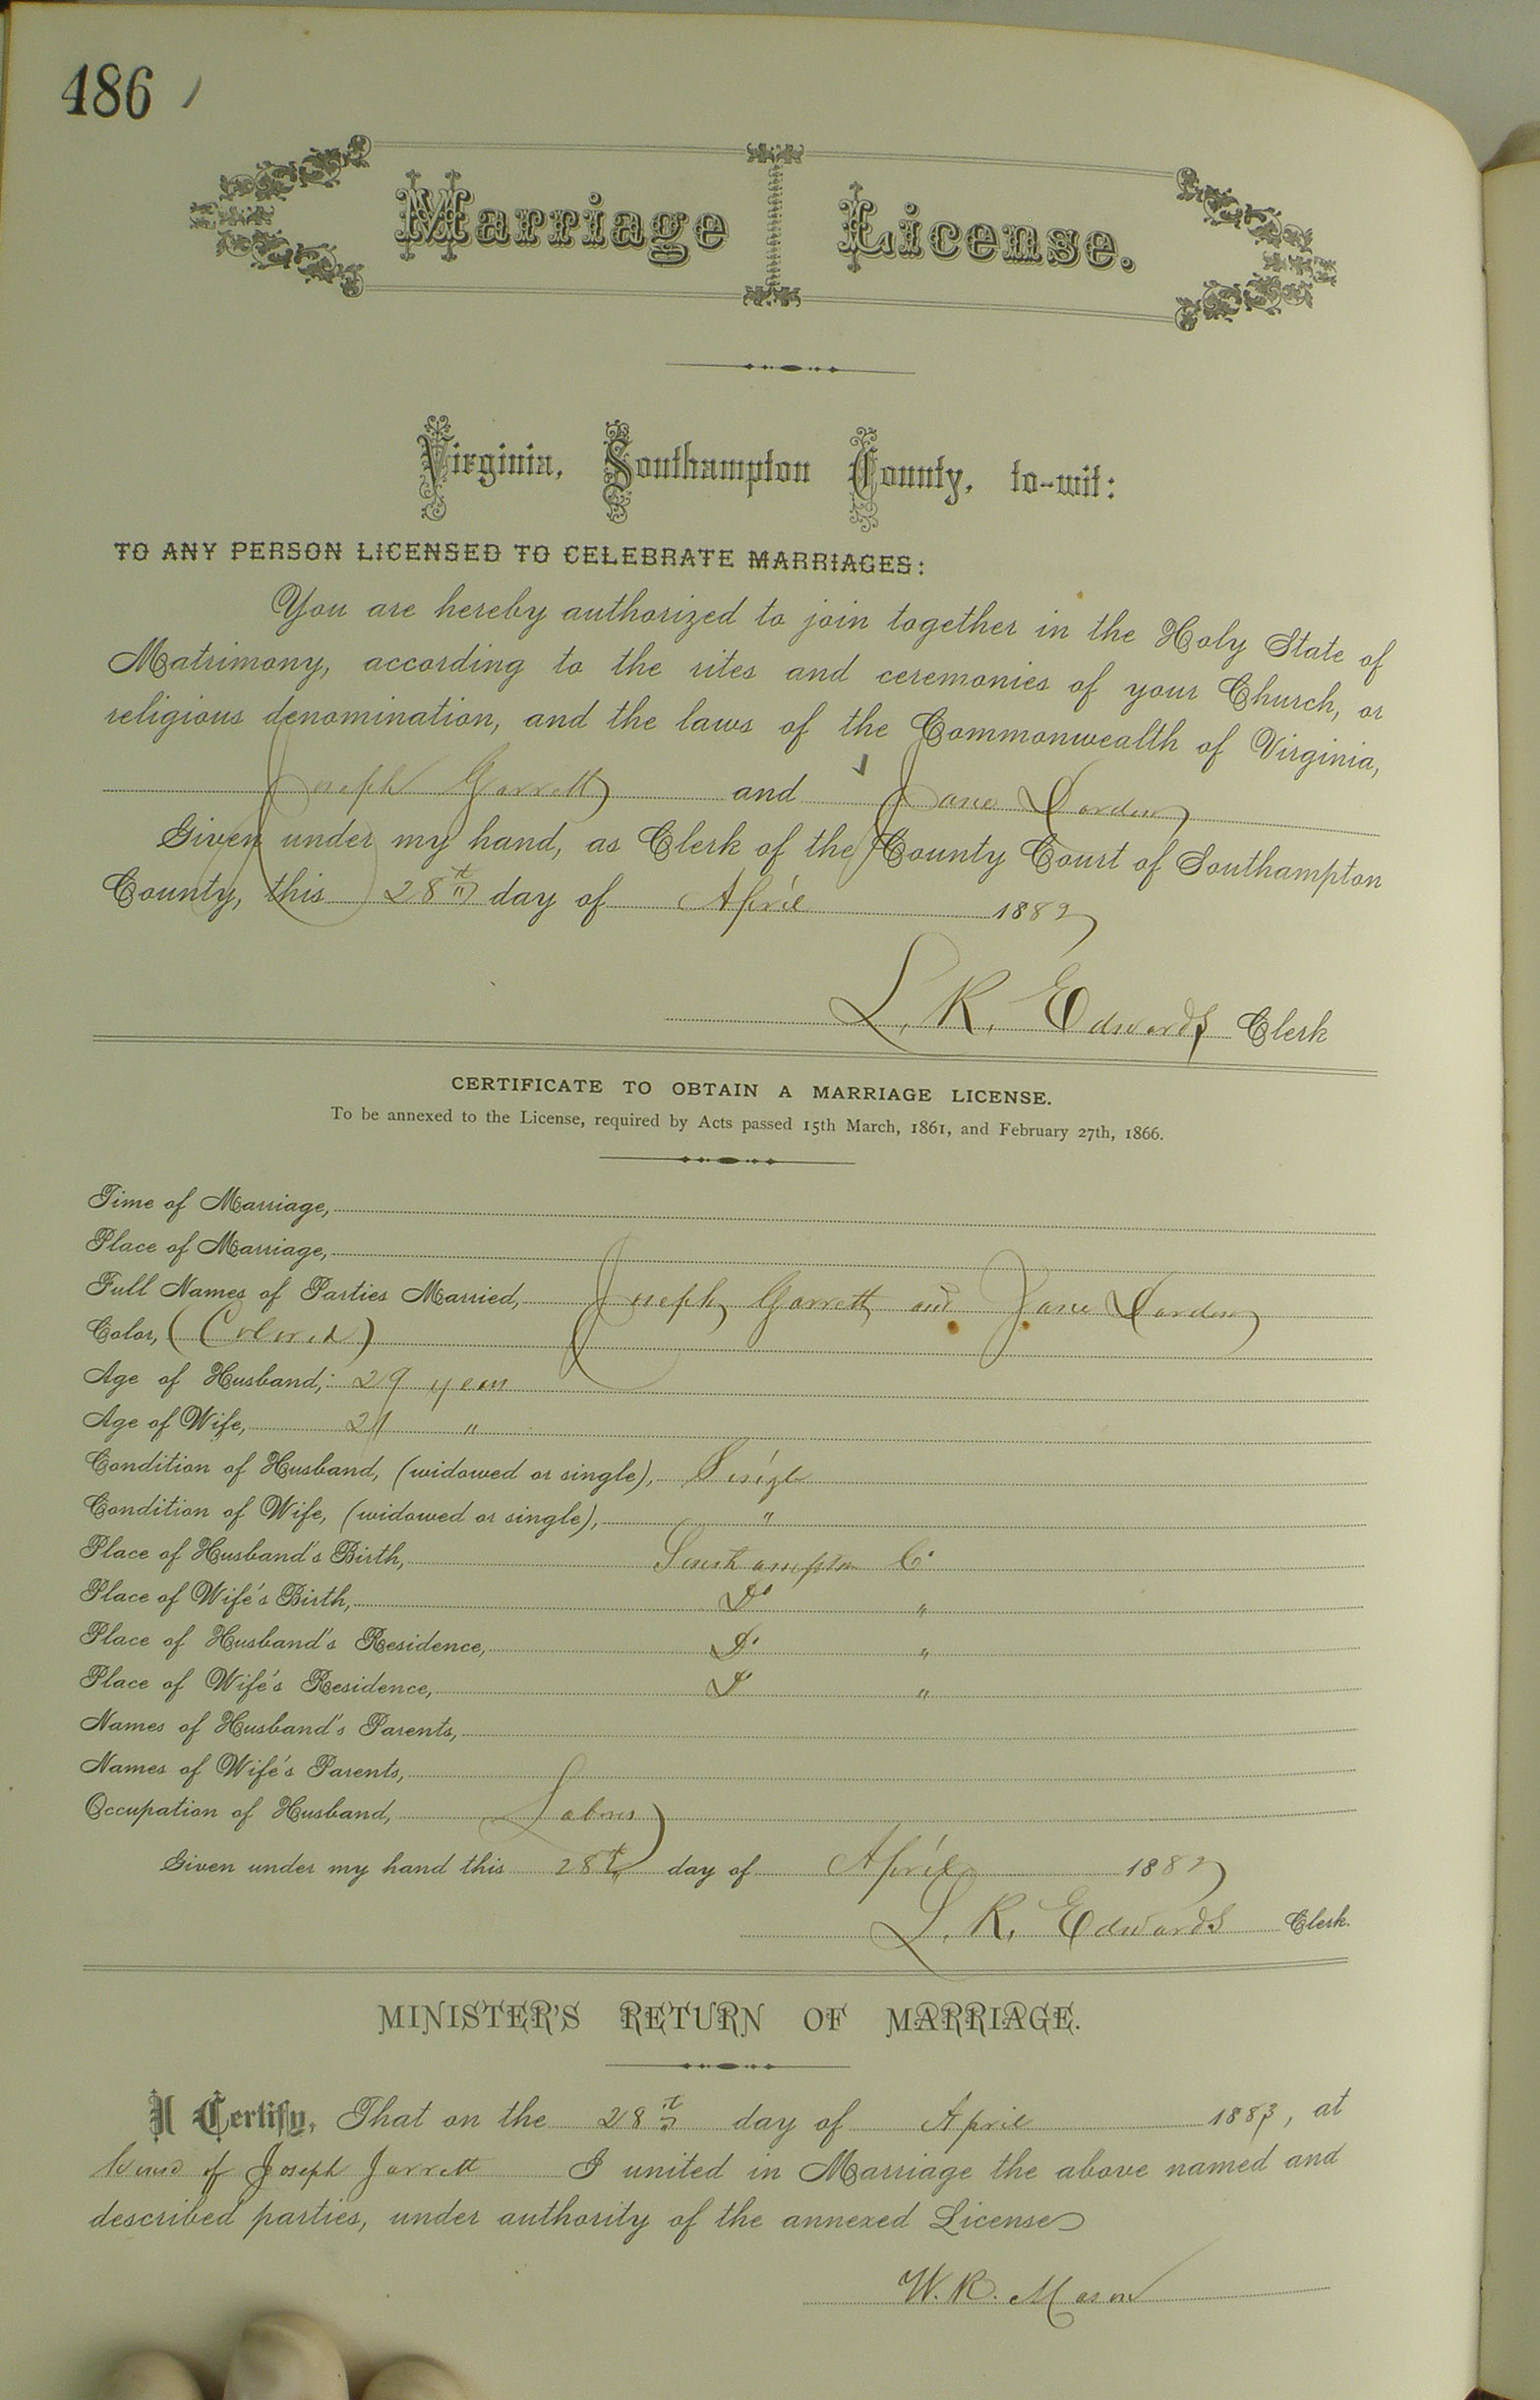 486
Marriage License.
Virginia, Southampton County, to-wit:
TO ANY PERSON LICENSED TO CELEBRATE MARRIAGES:
You are hereby authorized to join together in the Holy State of
Matrimony, according to the rites and ceremonies of your Church, or
religious denomination, and the laws of the Commonwealth of Virginia,
Joseph Garrett and Jane Darden
Given under my hand, as Clerk of the County Court of Southampton
County, this 28th day of April 1882
L. R. Edwards Clerk
CERTIFICATE TO OBTAIN A MARRIAGE LICENSE.
To be annexed to the License, required by Acts passed 15th March, 1861, and February 27th, 1866.
Time of Marriage,
Place of Marriage,
Full Names of Parties Married, Joseph Garrett and Jane Darden
Color, (Colored)
Age of Husband, 29 years
Age of Wife, 21 "
Condition of Husband, (widowed or single), Single
Condition of Wife, (widowed or single), "
Place of Husband's Birth, Southampton Co
Place of Wife's Birth, Do "
Place of Husband's Residence, Do "
Place of Wife's Residence, Do "
Names of Husband's Parents,
Names of Wife's Parents,
Occupation of Husband, Labor
Given under my hand this 28th day of April 1882
L. R. Edwards Clerk.
MINISTER'S RETURN OF MARRIAGE.
I Certify, That on the 28th day of April 1883, at
of Joseph Jarrett I united in Marriage the above named and
described parties, under authority of the annexed License
W. R. Mason